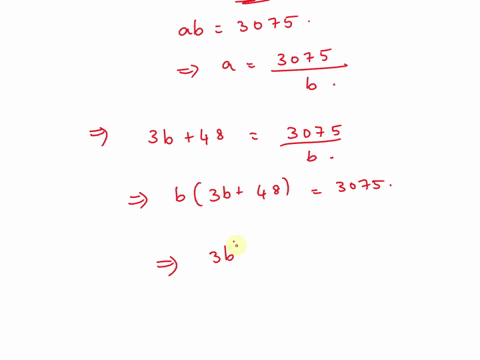 ab = 3075.
⇒ a = 3075/b.
⇒ 3b + 48 = 3075/b.
⇒ b(3b + 48) = 3075.
⇒ 3b